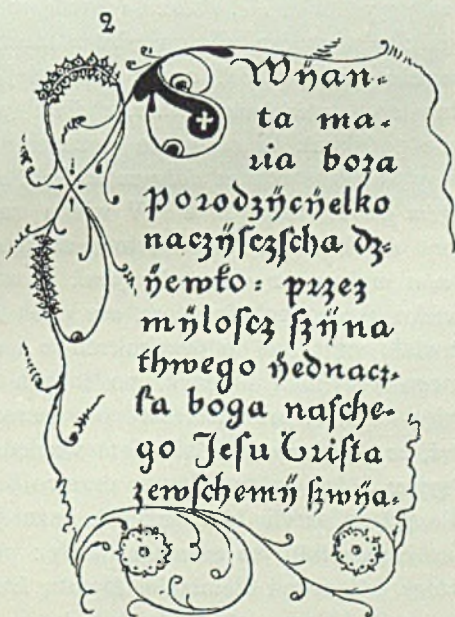 2
SWÿan-
ta ma-
ria boza
Porodzÿcÿelko
naczÿsczscha dz-
ÿewko: przez
mÿloscz szÿna
thwego ÿednacz-
ka boga nasche-
go Jesu Crista
zewschemÿ szwÿa-